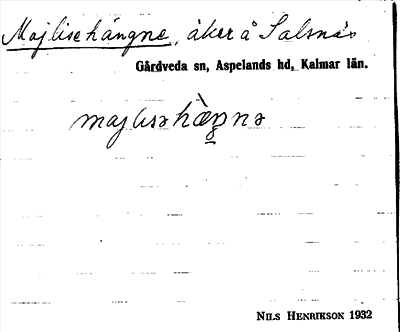 Majlisehängne, åker å Salsnäs
Gårdveda sn, Aspelands hd, Kalmar län.
majlisəhὰŋnə
NILS HENRIKSON 1932